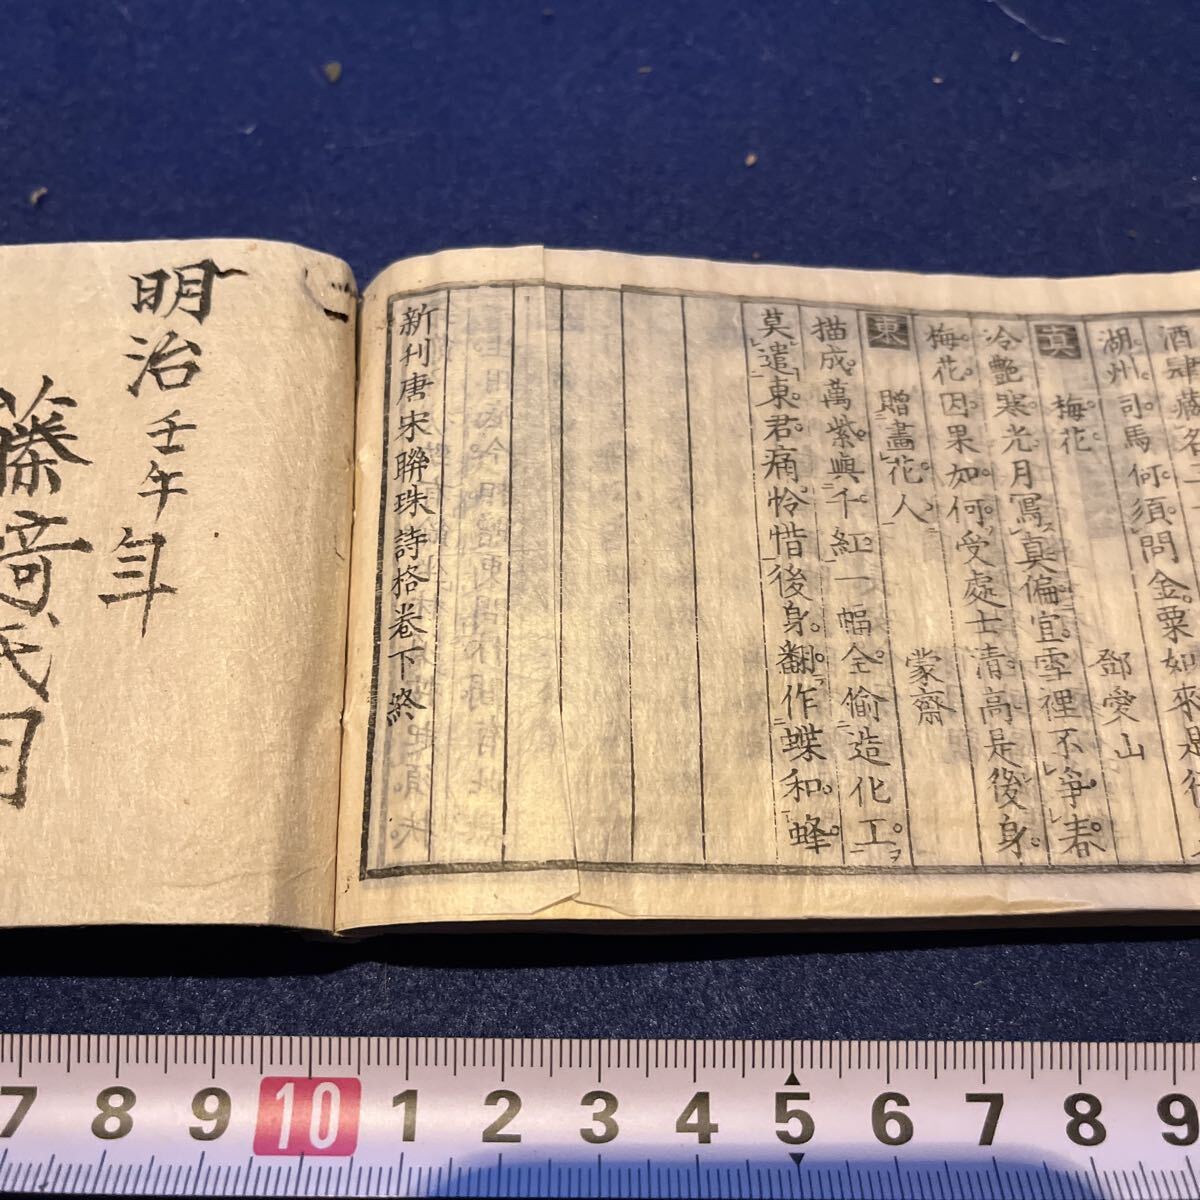 酒肆藏名一
湖州司馬何須問金粟如來是
眞 梅花 鄧愛山
冷艶寒光月寫真偏宜雪裡不爭春
梅花因果如何受處士清高是後身
東 贈畫花人 蒙齋
描成萬紫與千紅一幅全偷造化工
莫遣東君痛怜惜後身翻作蝶和蜂
新刊唐宋聯珠詩格卷下終
明治壬午年
藤﨑氏
7 8 9 10 1 2 3 4 5 6 7 8 9